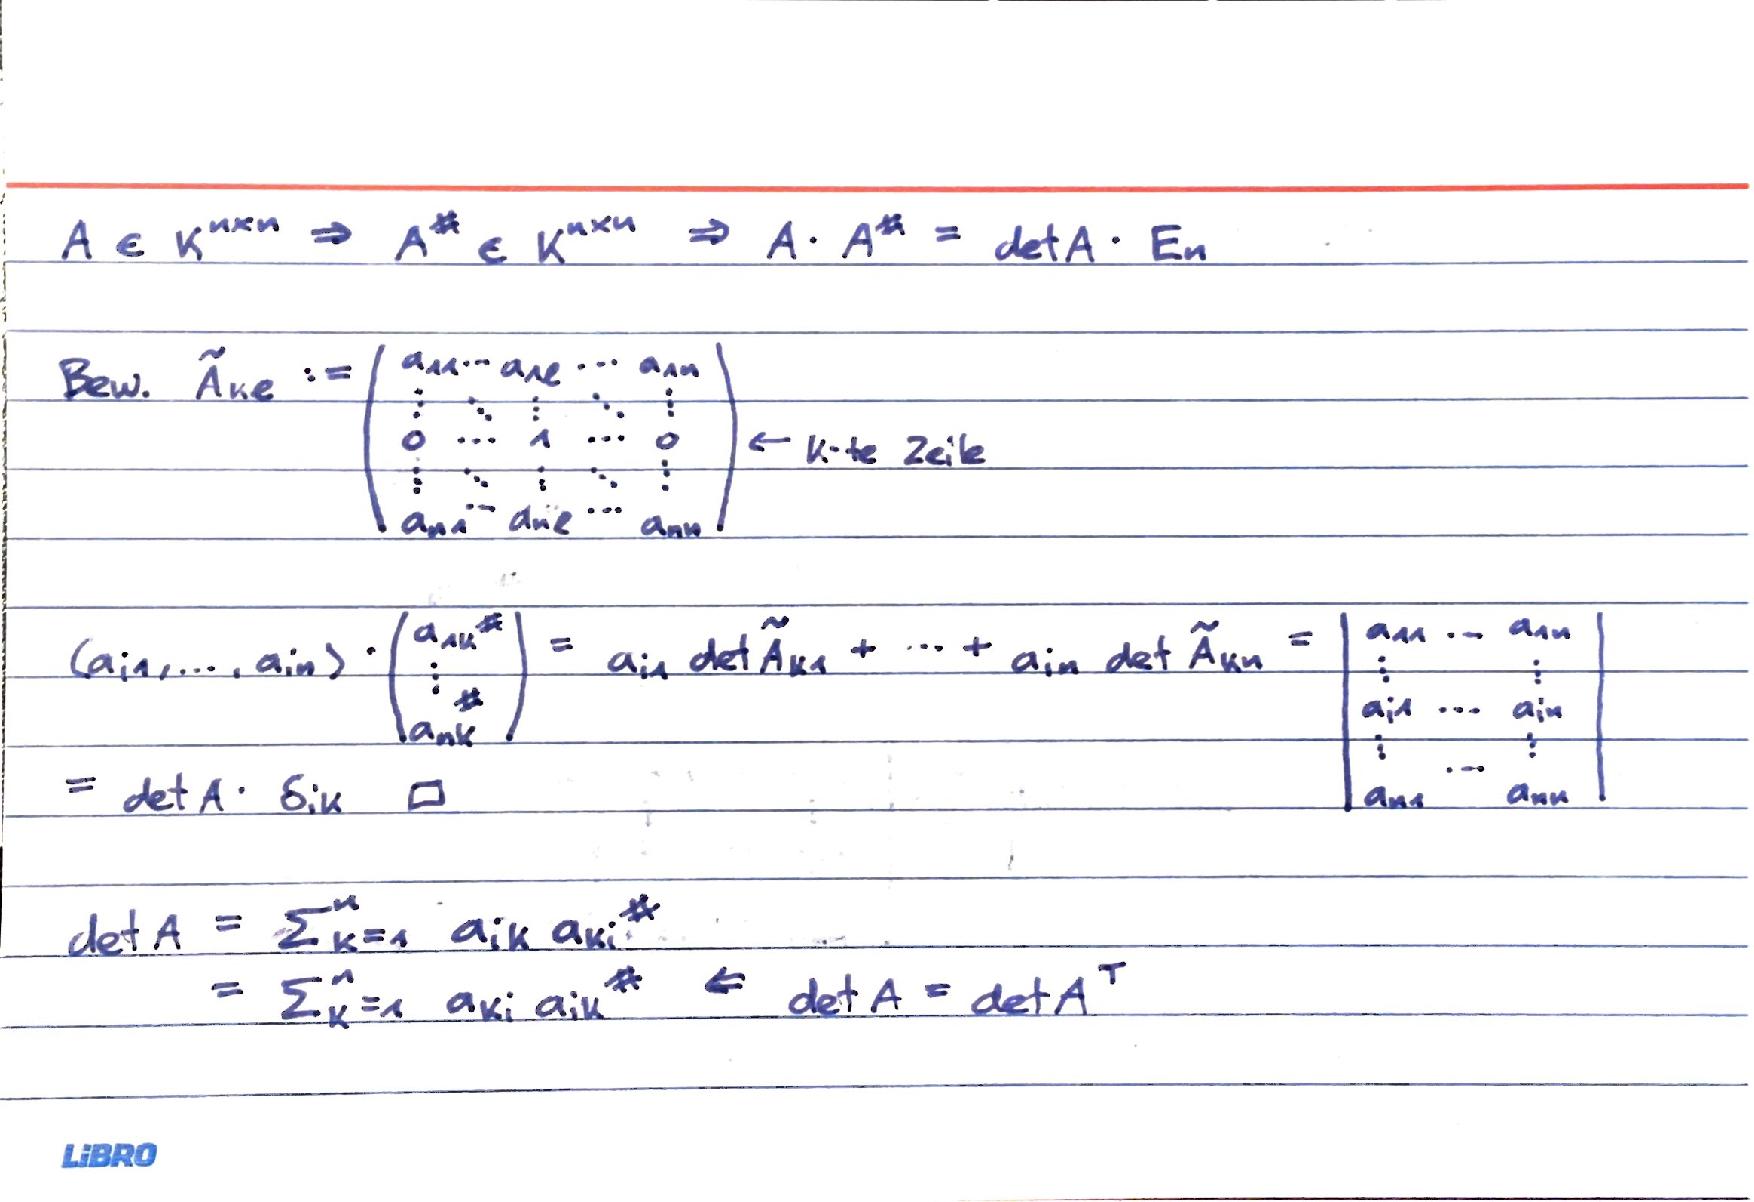 A ∈ K^{n×n} ⇒ A^# ∈ K^{n×n} ⇒ A · A^# = det A · E_n
Bew. Ã_{kl} := ( a_{11} ⋯ a_{1l} ⋯ a_{1n}
⋮ ⋱ ⋮ ⋱ ⋮
0 ⋯ 1 ⋯ 0 ) ← k-te Zeile
⋮ ⋱ ⋮ ⋱ ⋮
a_{n1} ⋯ a_{nl} ⋯ a_{nn}
(a_{i1}, ..., a_{in}) · ( a_{1k}^# ⋮ a_{nk}^# ) = a_{i1} det Ã_{k1} + ⋯ + a_{in} det Ã_{kn} = | a_{11} ⋯ a_{1n}
⋮ ⋮
a_{i1} ⋯ a_{in}
⋮ ⋯ ⋮
a_{n1} a_{nn} |
= det A · δ_{ik} □
det A = Σ_{k=1}^n a_{ik} a_{ki}^#
= Σ_{k=1}^n a_{ki} a_{ik}^# ⇐ det A = det A^T
LiBRO